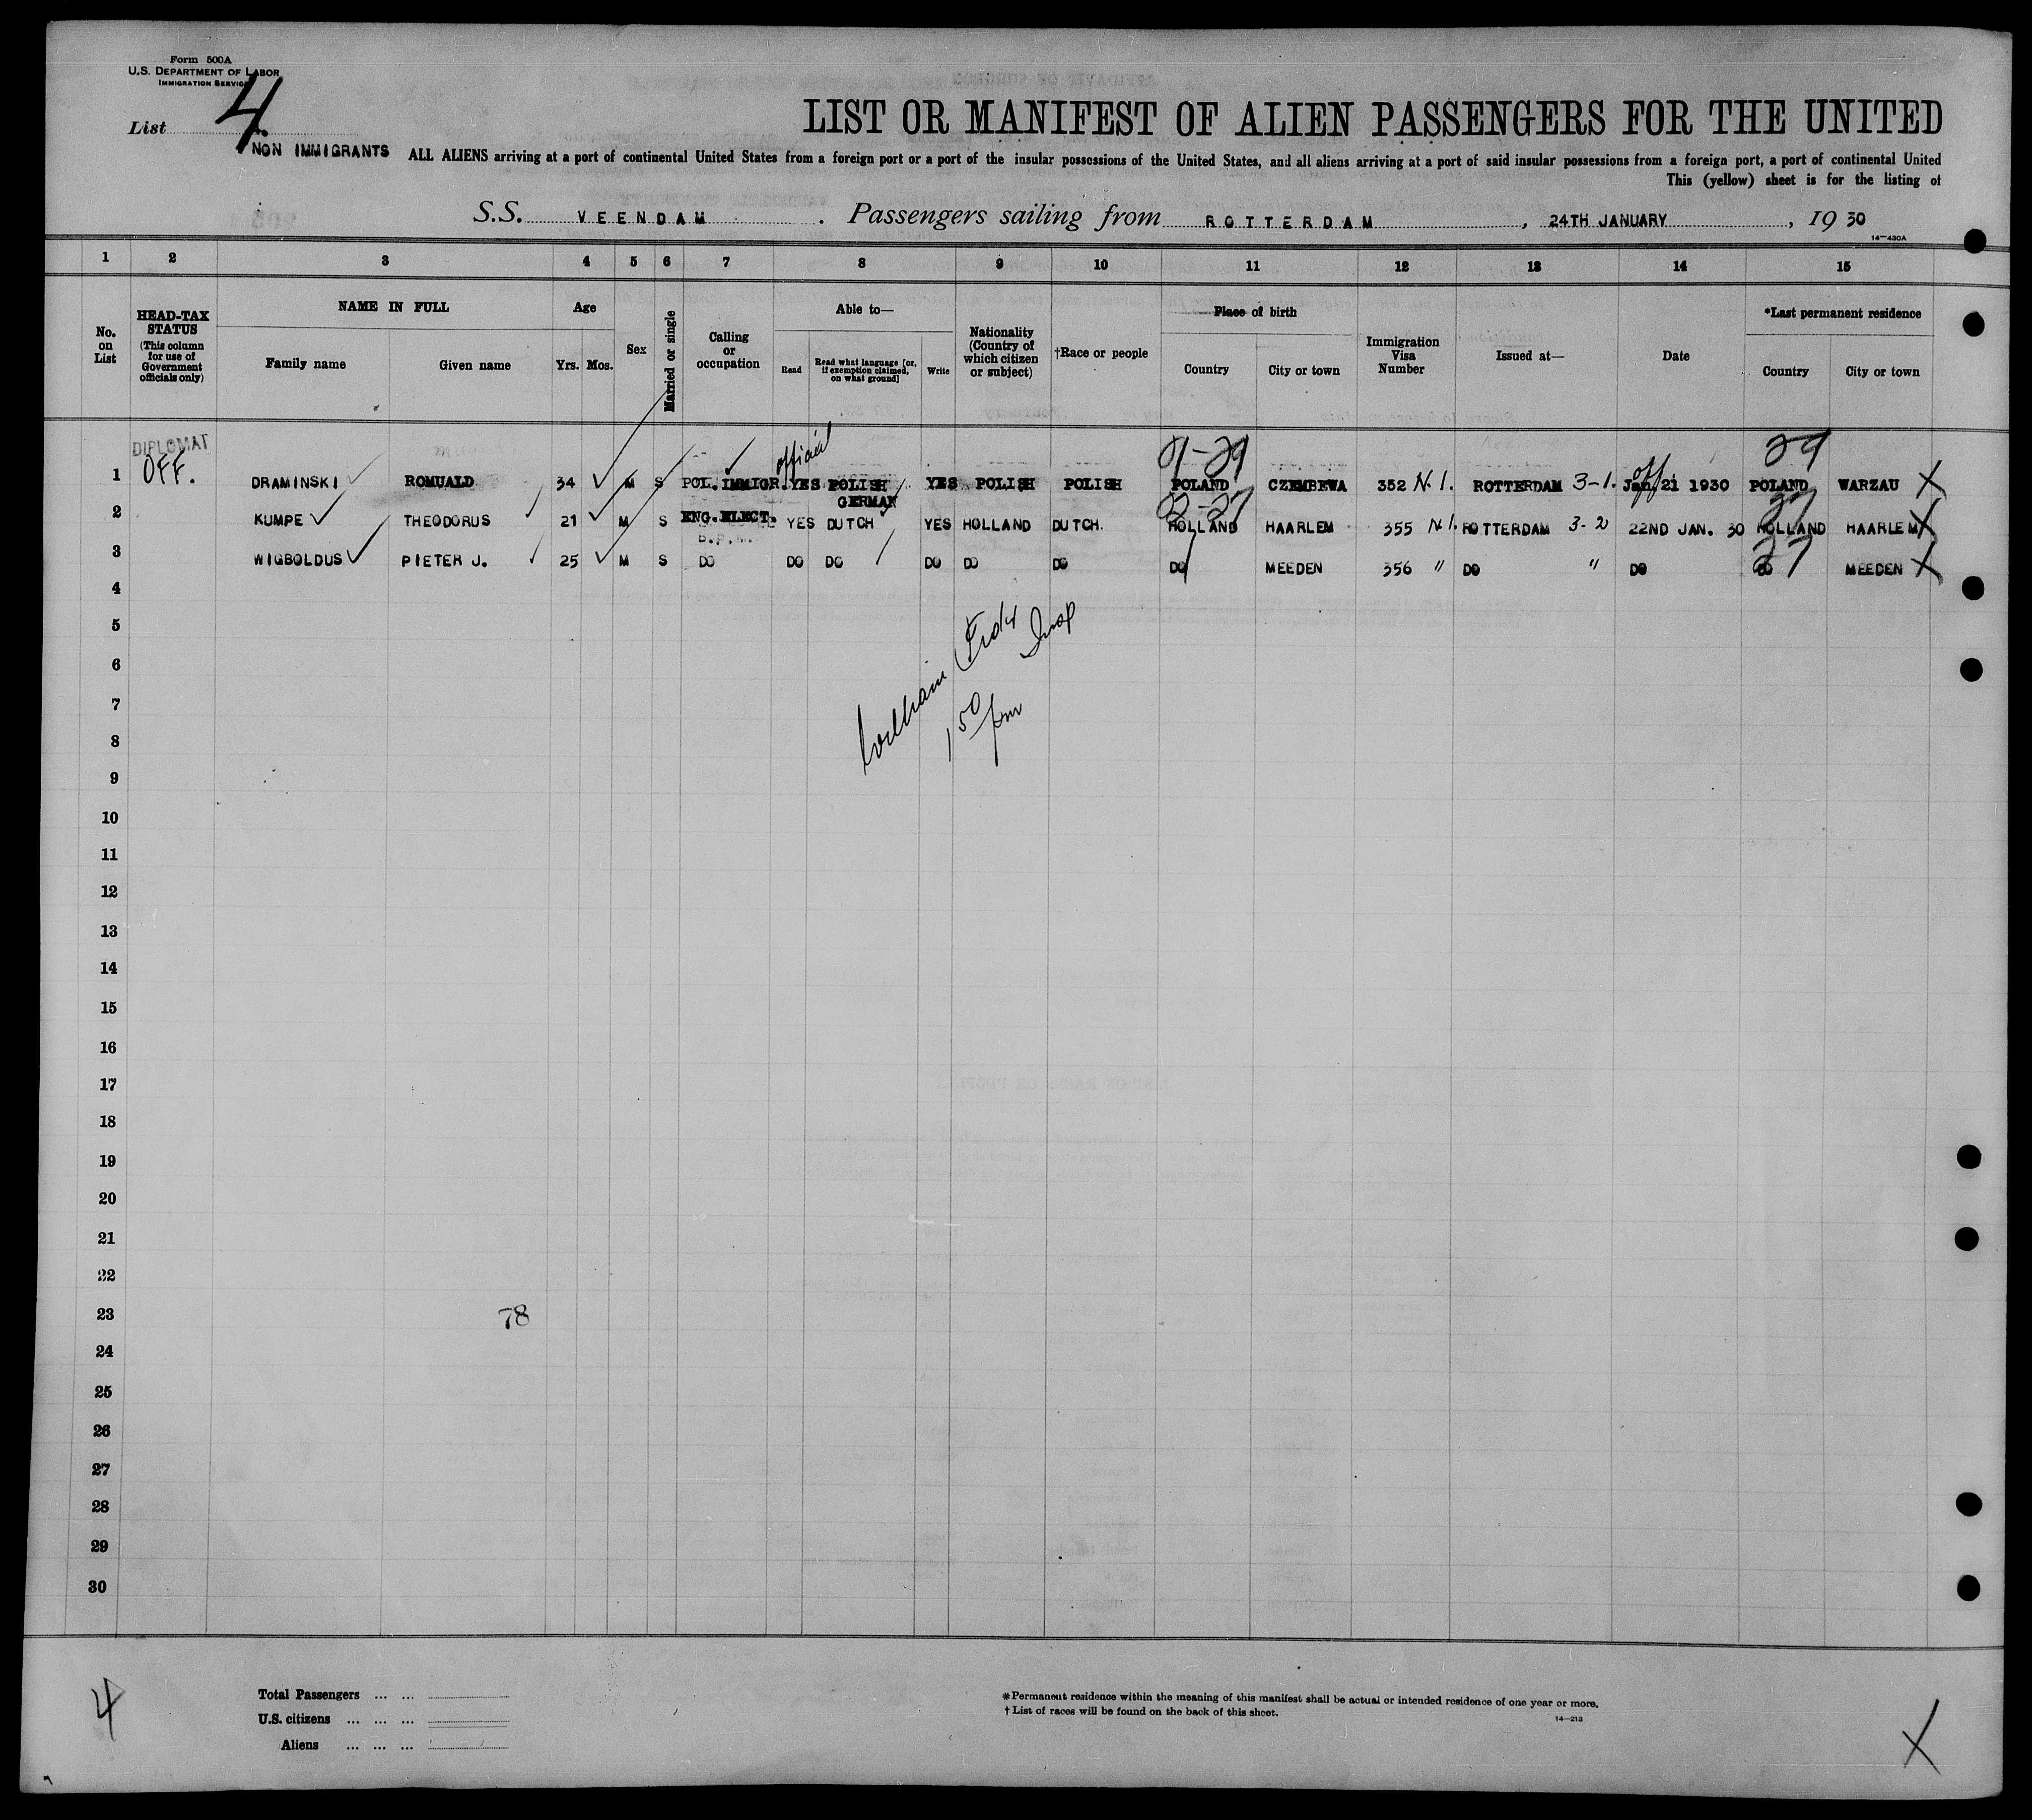 Form 500A
U.S. DEPARTMENT OF LABOR
IMMIGRATION SERVICE
List 4
NON IMMIGRANTS
LIST OR MANIFEST OF ALIEN PASSENGERS FOR THE UNITED
ALL ALIENS arriving at a port of continental United States from a foreign port or a port of the insular possessions of the United States, and all aliens arriving at a port of said insular possessions from a foreign port, a port of continental United
This (yellow) sheet is for the listing of
S.S. VEENDAM . Passengers sailing from ROTTERDAM , 24TH JANUARY , 19 30
14—430A
1 2 3 4 5 6 7 8 9 10 11 12 13 14 15
No. on List
HEAD-TAX STATUS (This column for use of Government officials only)
NAME IN FULL
Family name Given name
Age
Yrs. Mos.
Sex
Married or single
Calling or occupation
Able to—
Read
Read what language [or, if exemption claimed, on what ground]
Write
Nationality (Country of which citizen or subject)
†Race or people
Place of birth
Country City or town
Immigration Visa Number
Issued at—
Date
*Last permanent residence
Country City or town
DIPLOMAT official 21-29 off 29
1 OFF. DRAMINSKI ROMUALD 34 M S POL. IMMIGR. YES POLISH GERMAN YES POLISH POLISH POLAND CZEMBEWA 352 N.1. ROTTERDAM 3-1. Jan. 21 1930 POLAND WARZAU X
22-27 27
2 KUMPE THEODORUS 21 M S ENG. ELECT. YES DUTCH YES HOLLAND DUTCH. HOLLAND HAARLEM 355 N.1. ROTTERDAM 3-2 22ND JAN. 30 HOLLAND HAARLEM X
B.P.M.
3 WIGBOLDUS PIETER J. 25 M S DO DO DO DO DO DO DO MEEDEN 356 " DO " DO DO 27 MEEDEN X
4
5
6
William Insp
7
1 50 pm
8
9
10
11
12
13
14
15
16
17
18
19
20
21
22
23
78
24
25
26
27
28
29
30
4
Total Passengers ... ...
U.S. citizens ... ... ...
Aliens ... ... ...
*Permanent residence within the meaning of this manifest shall be actual or intended residence of one year or more.
† List of races will be found on the back of this sheet.
14—213
X